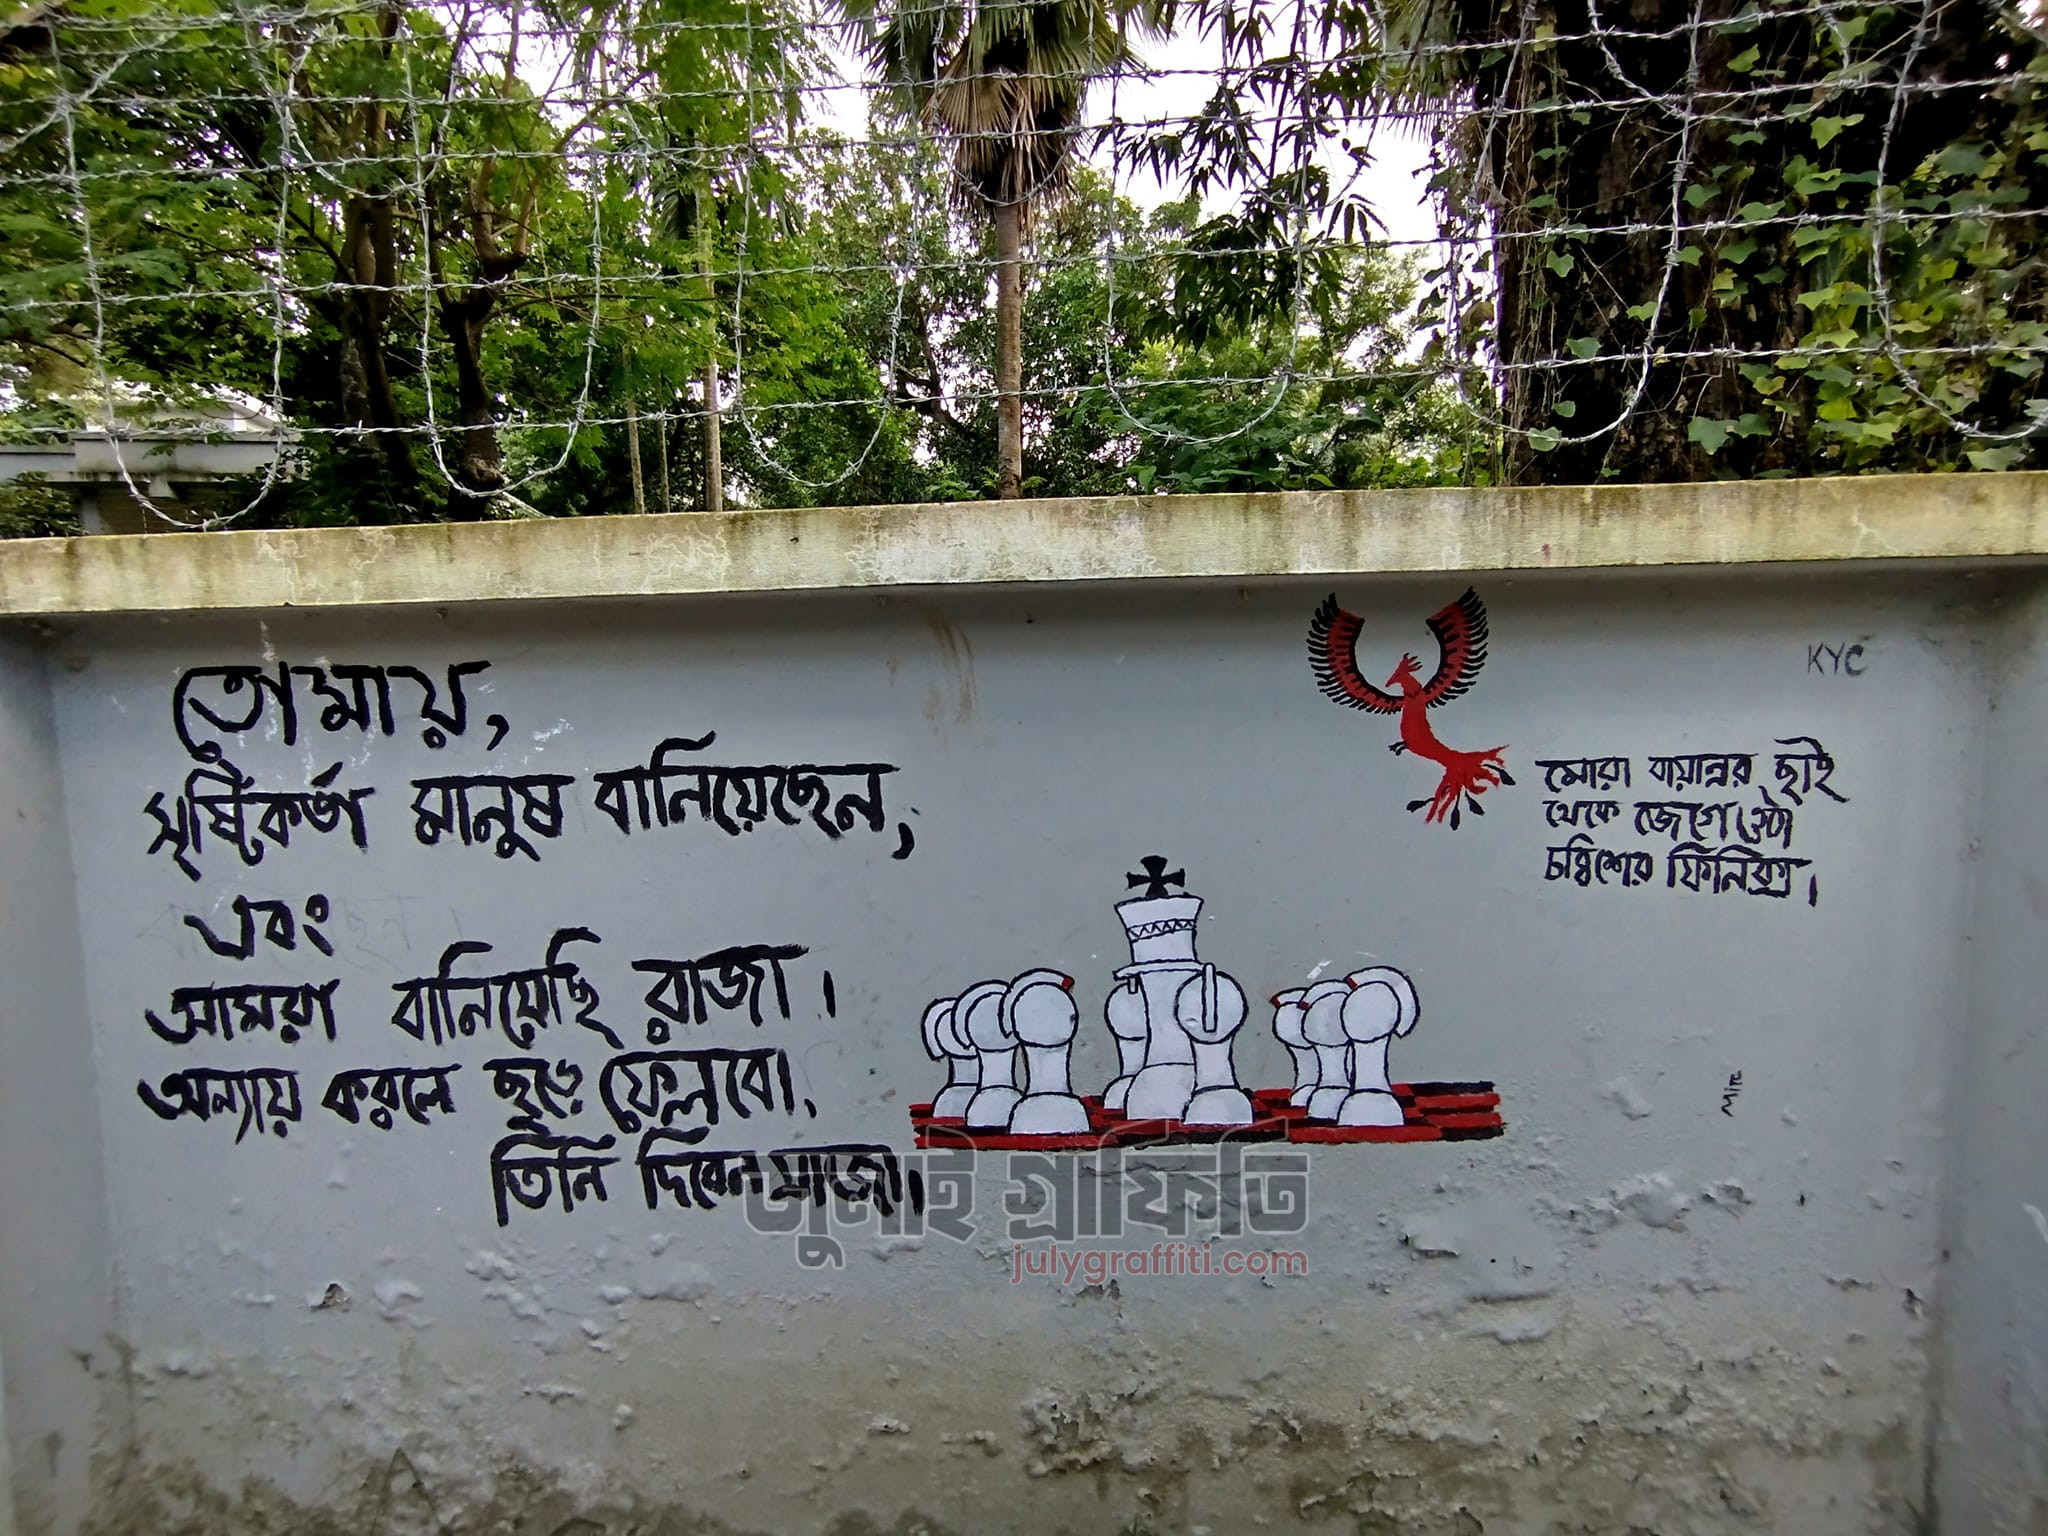 তোমায়,
সৃষ্টিকর্তা মানুষ বানিয়েছেন,
এবং
আমরা বানিয়েছি রাজা।
অন্যায় করলে ছুড়ে ফেলবো,
তিনি দিবেন সাজা।
KYC
মোরা বায়ান্নর ছাই
থেকে জেগে ওঠা
চব্বিশের ফিনিক্স।
জুলাই গ্রাফিতি
julygraffiti.com